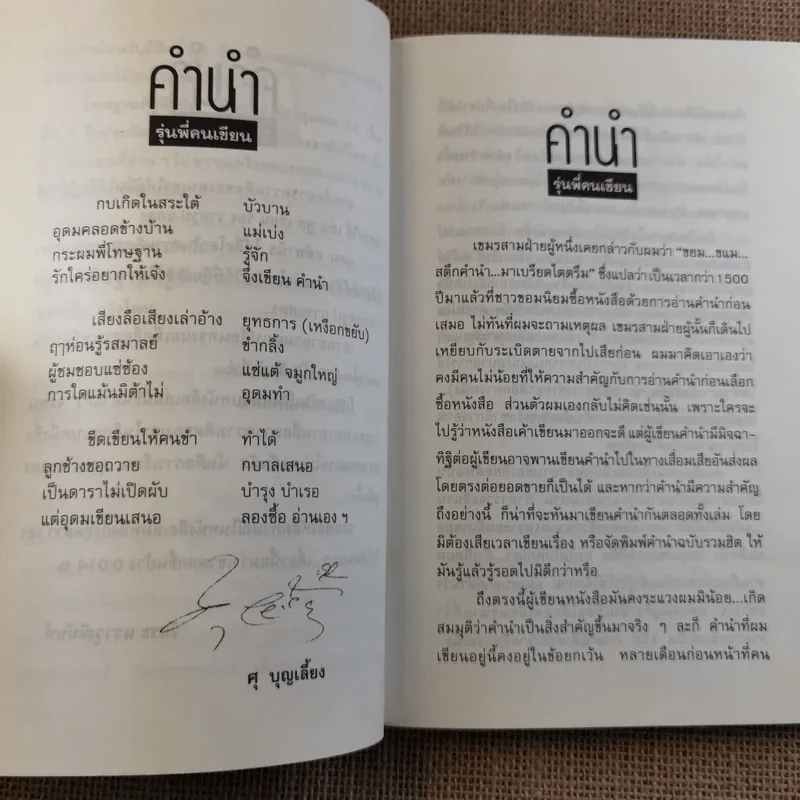 คำนำ
รุ่นพี่คนเขียน
กบเกิดในสระใต้ บัวบาน
อุดมคลอดข้างบ้าน แม่เบ่ง
กระผมพี่โทษฐาน รู้จัก
รักใคร่อยากให้เจ๋ง จึงเขียน คำนำ
เสียงลือเสียงเล่าอ้าง ยุทธการ (เหงือกขยับ)
ฤๅห่อนรู้รสมาลย์ ขำกลิ้ง
ผู้ชมชอบแซ่ซ้อง แซ่แต้ จมูกใหญ่
การใดแม้นมิต้าไม่ อุดมทำ
ขีดเขียนให้คนขำ ทำได้
ลูกช้างขอถวาย กบาลเสนอ
เป็นดาราไม่เปิดผับ บำรุง บำเรอ
แต่อุดมเขียนเสนอ ลองซื้อ อ่านเอง ฯ
ศุ บุญเลี้ยง
คำนำ
รุ่นพี่คนเขียน
เขมรสามฝ่ายผู้หนึ่งเคยกล่าวกับผมว่า “ขอม...ขแม...
สตึกคำนำ...มาเบรียดไตตรึม” ซึ่งแปลว่าเป็นเวลากว่า 1500
ปีมาแล้วที่ชาวขอมนิยมซื้อหนังสือด้วยการอ่านคำนำก่อน
เสมอ ไม่ทันที่ผมจะถามเหตุผล เขมรสามฝ่ายผู้นั้นก็เดินไป
เหยียบกับระเบิดตายจากไปเสียก่อน ผมมาคิดเอาเองว่า
คงมีคนไม่น้อยที่ให้ความสำคัญกับการอ่านคำนำก่อนเลือก
ซื้อหนังสือ ส่วนตัวผมเองกลับไม่คิดเช่นนั้น เพราะใครจะ
ไปรู้ว่าหนังสือเค้าเขียนมาออกจะดี แต่ผู้เขียนคำนำมีมิจฉา-
ทิฐิต่อผู้เขียนอาจพานเขียนคำนำไปในทางเสื่อมเสียอันส่งผล
โดยตรงต่อยอดขายก็เป็นได้ และหากว่าคำนำมีความสำคัญ
ถึงอย่างนี้ ก็น่าที่จะหันมาเขียนคำนำกันตลอดทั้งเล่ม โดย
มิต้องเสียเวลาเขียนเรื่อง หรือจัดพิมพ์คำนำฉบับรวมฮิต ให้
มันรู้แล้วรู้รอดไปมิดีกว่าหรือ
ถึงตรงนี้ผู้เขียนหนังสือมันคงระแวงผมมิน้อย...เกิด
สมมุติว่าคำนำเป็นสิ่งสำคัญขึ้นมาจริง ๆ ละก็ คำนำที่ผม
เขียนอยู่นี้คงอยู่ในข้อยกเว้น หลายเดือนก่อนหน้าที่คน